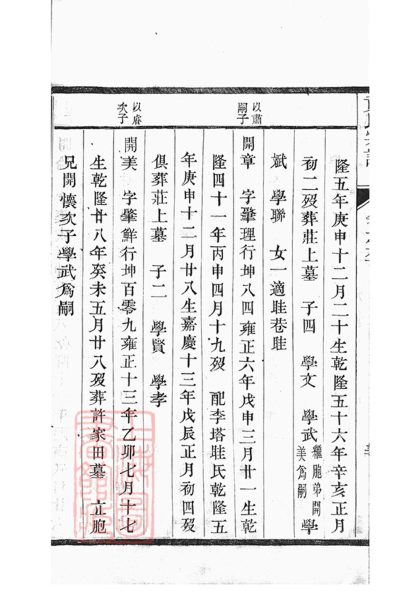 隆五年庚申十二月二十生乾隆五十六年辛亥正月
初二歿葬莊上墓 子四 學文 學武繼胞弟開美爲嗣 學
斌 學聯 女一適眭巷眭
以蕭嗣子
開章 字肇理行坤八四雍正六年戊申三月廿一生乾
隆四十一年丙申四月十九歿 配李塔眭氏乾隆五
年庚申十二月廿八生嘉慶十三年戊辰正月初四歿
俱葬莊上墓 子二 學賢 學孝
以睿次子
開美 字肇鮮行坤百零九雍正十三年乙卯七月十七
生乾隆廿八年癸未五月廿八歿葬許家田墓 立胞
兄開懷次子學武爲嗣